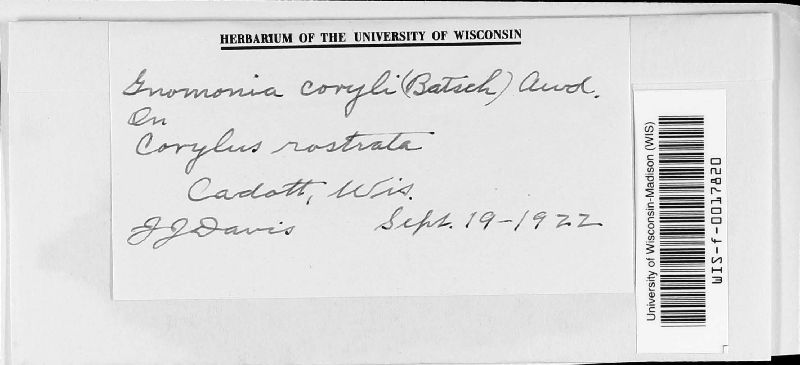 HERBARIUM OF THE UNIVERSITY OF WISCONSIN
Gnomonia coryli (Batsch) Awd.
On
Corylus rostrata
Cadott, Wis.
JJDavis Sept. 19-1922
University of Wisconsin-Madison (WIS)
WIS-f-0017820